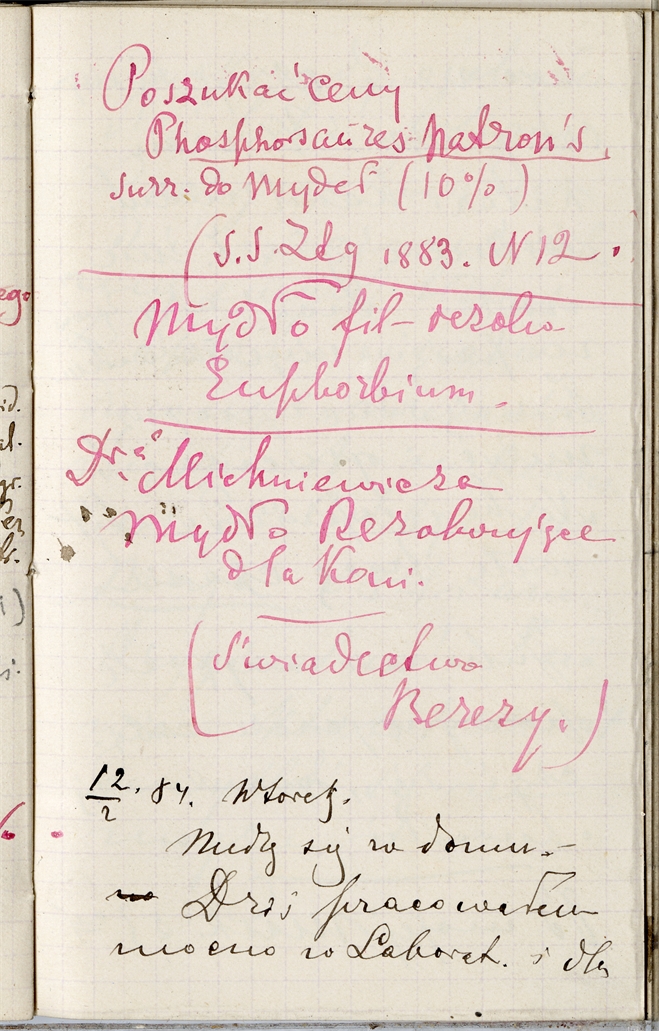 Poszukać ceny
Phosphorsaures natron's
surr. do mydeł (10%)
(S.S. Ztg 1883. N 12.
Mydło fil-
Euphorbium.
Dra Michniewicza
Mydło Rezolwujące
dla Koni.
(Świadectwo
Berezy.)
12/2. 84. Wtorek.
Nudzę się w domu.-
Dziś pracowałem
mocno w Laborat. i dla